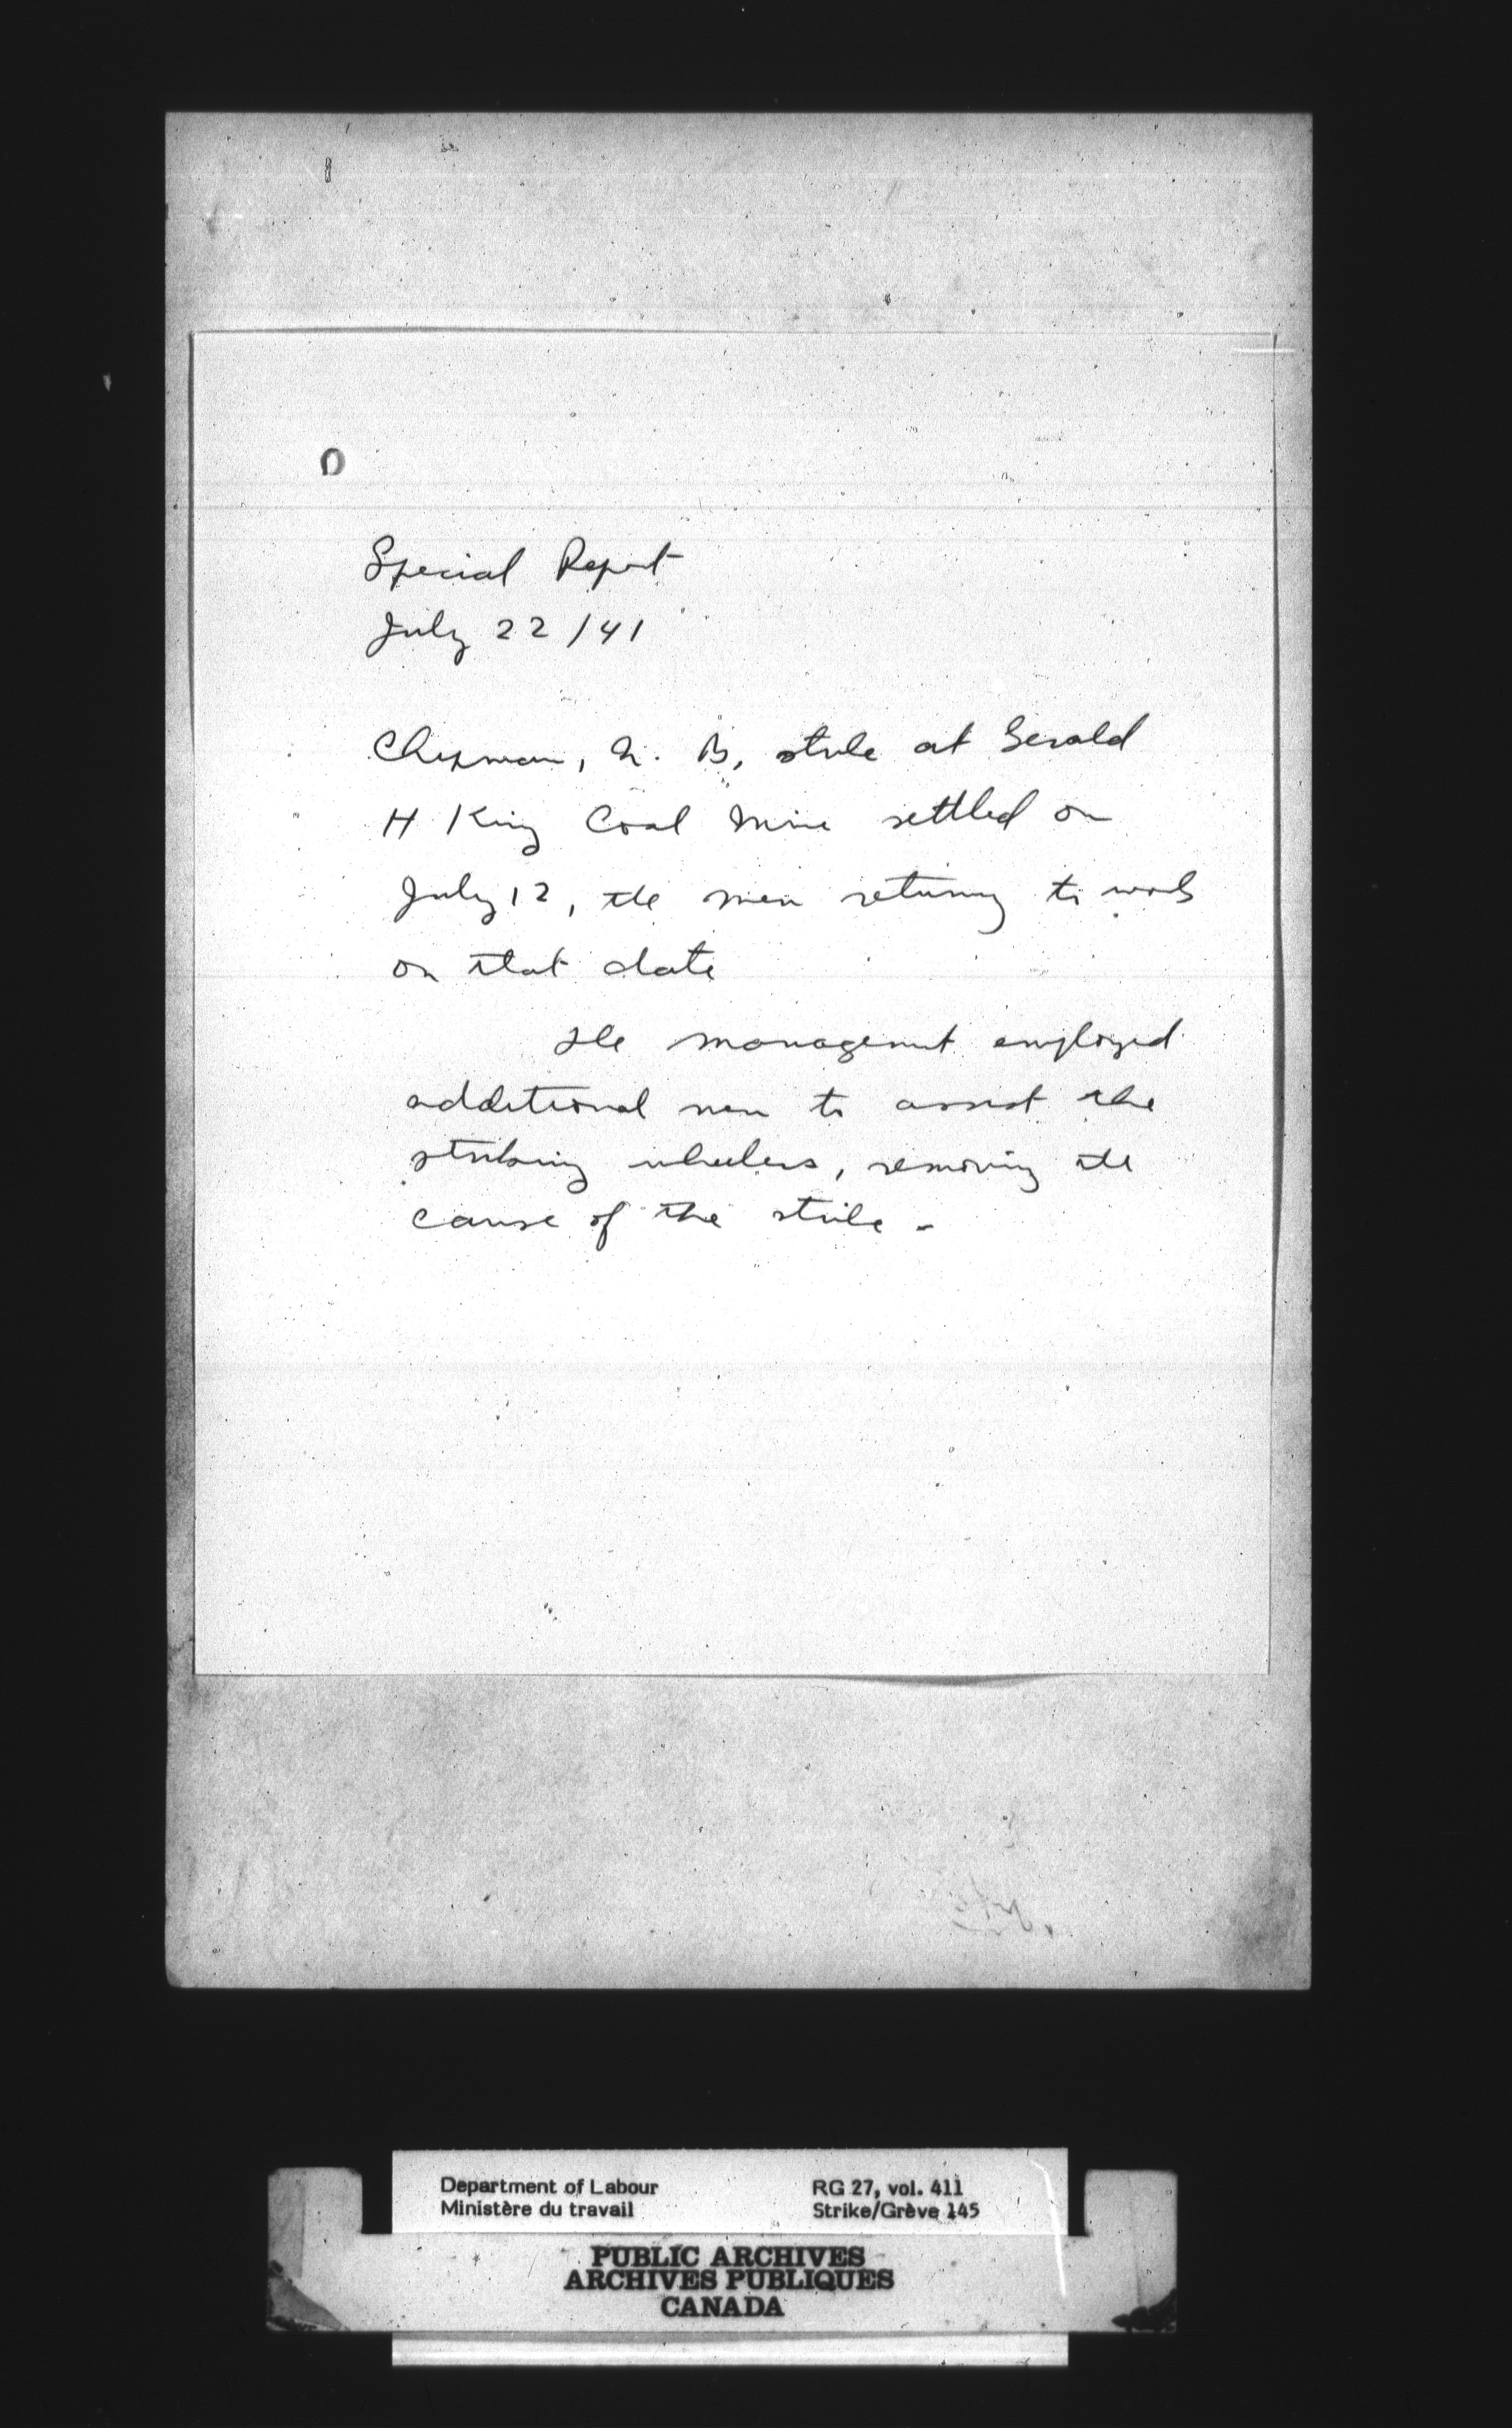 Special Report
July 22/41
Chipman, N. B, strike at Gerald
H King Coal Mine settled on
July 12, the men returning to work
on that date
The management employed
additional men to assist the
striking wheelers, removing the
cause of the strike -
Department of Labour
Ministère du travail
RG 27, vol. 411
Strike/Grève 145
PUBLIC ARCHIVES
ARCHIVES PUBLIQUES
CANADA